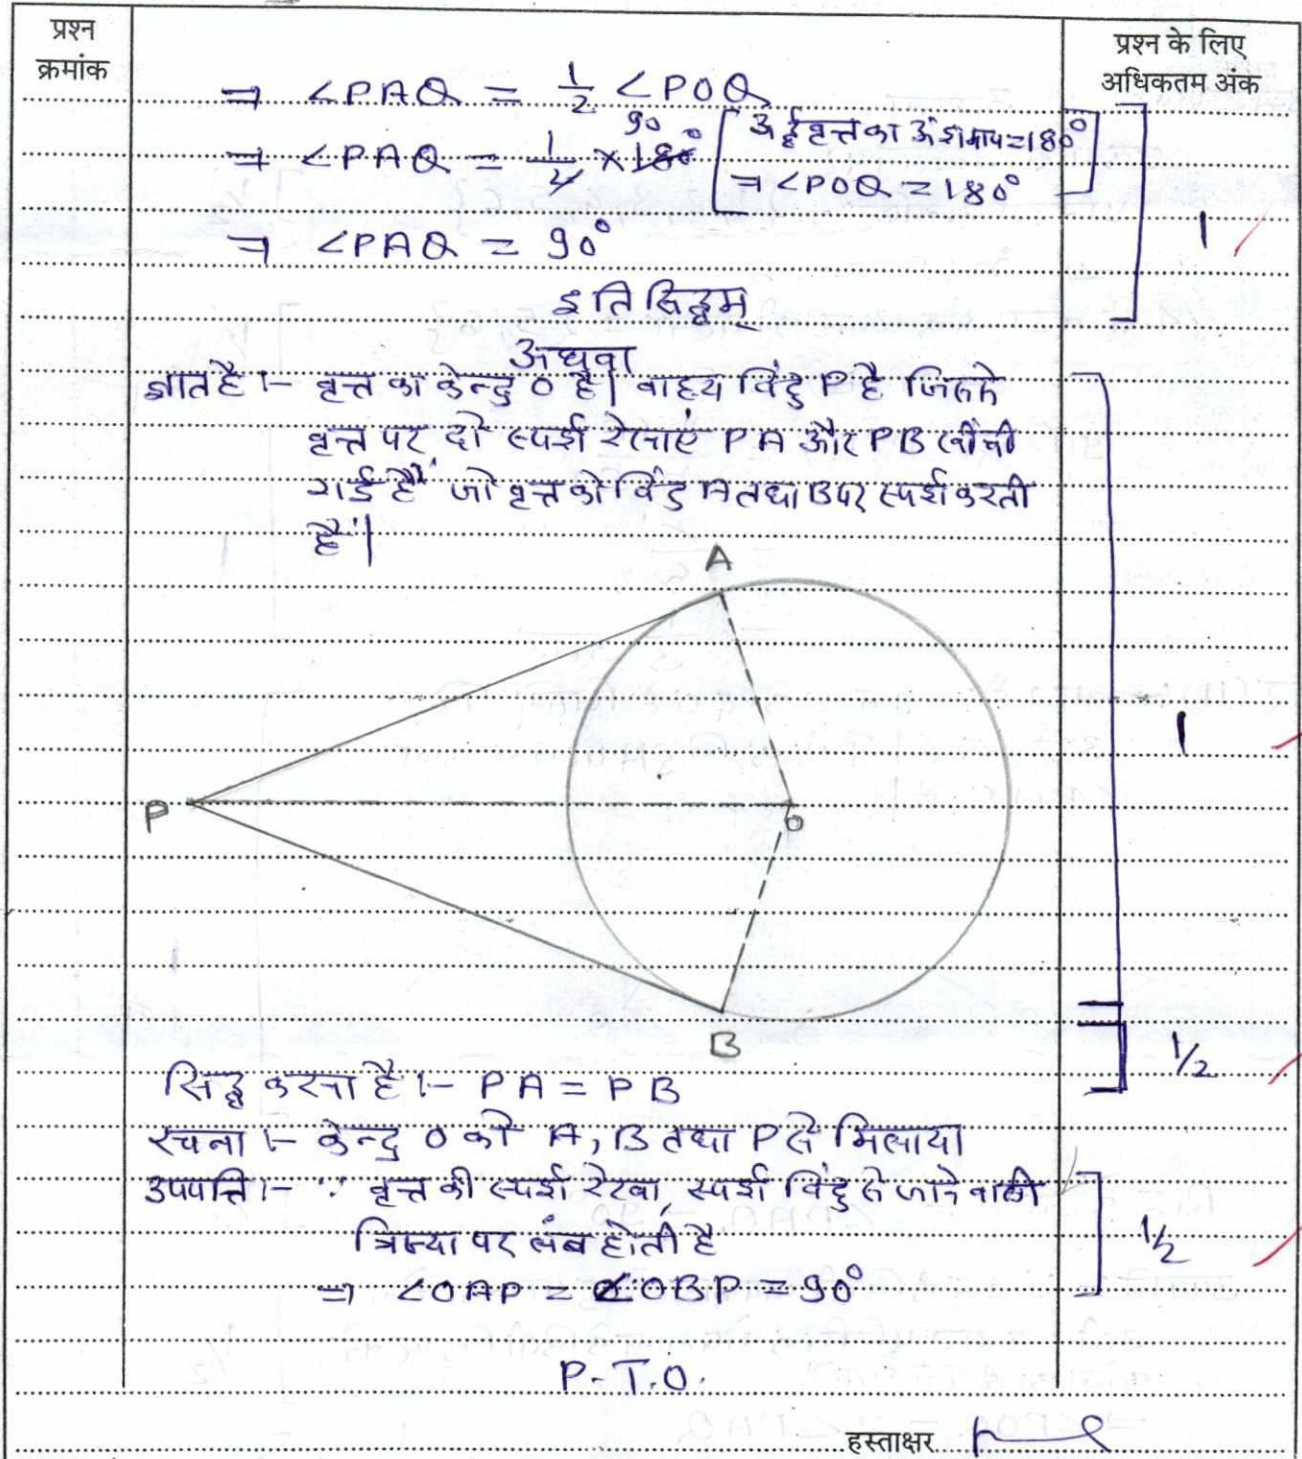 प्रश्न
क्रमांक
प्रश्न के लिए
अधिकतम अंक
⇒ ∠PAQ = 1/2 ∠POQ
⇒ ∠PAQ = 1/2 × 180° 90 [अर्द्धवृत्त का अंशमाप = 180°
⇒ ∠POQ = 180°]
⇒ ∠PAQ = 90°
1
इति सिद्धम्
अथवा
ज्ञात है :- वृत्त का केन्द्र O है। वाह्य विंदु P है जिससे
वृत्त पर दो स्पर्श रेखाएं PA और PB खींची
गई हैं जो वृत्त को विंदु A तथा B पर स्पर्श करती
हैं।
A
P
O
B
1
1/2
सिद्ध करना है :- PA = PB
रचना :- केन्द्र O को A, B तथा P से मिलाया
उपपत्ति :- ∵ वृत्त की स्पर्श रेखा, स्पर्श विंदु से जाने वाली
त्रिज्या पर लंब होती है
1/2
⇒ ∠OAP = ∠OBP = 90°
P.T.O.
हस्ताक्षर